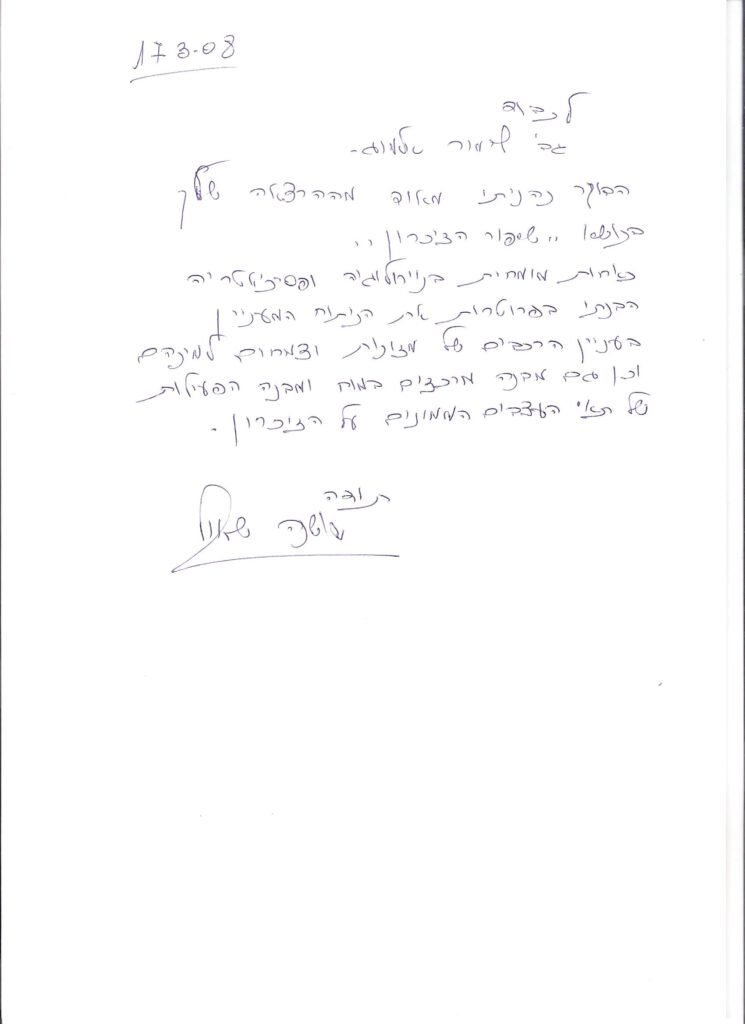 17.3.08
לכבוד
גב' לימור אלמוג-
הבוקר נהניתי מאוד מההרצאה שלך
בנושא ,,שיפור הזיכרון,,
כאחות מומחית בנוירולוגיה ופסיכיאטריה
הבנתי בפרוטרוט את הניתוח המעניין
בעניין הרכבים של מזונות וצמחים למינהם
וכן גם מבנה מרכזים במוח ומבנה הפעילות
של תאי העצבים הממונים על הזיכרון.
תודה
שאול